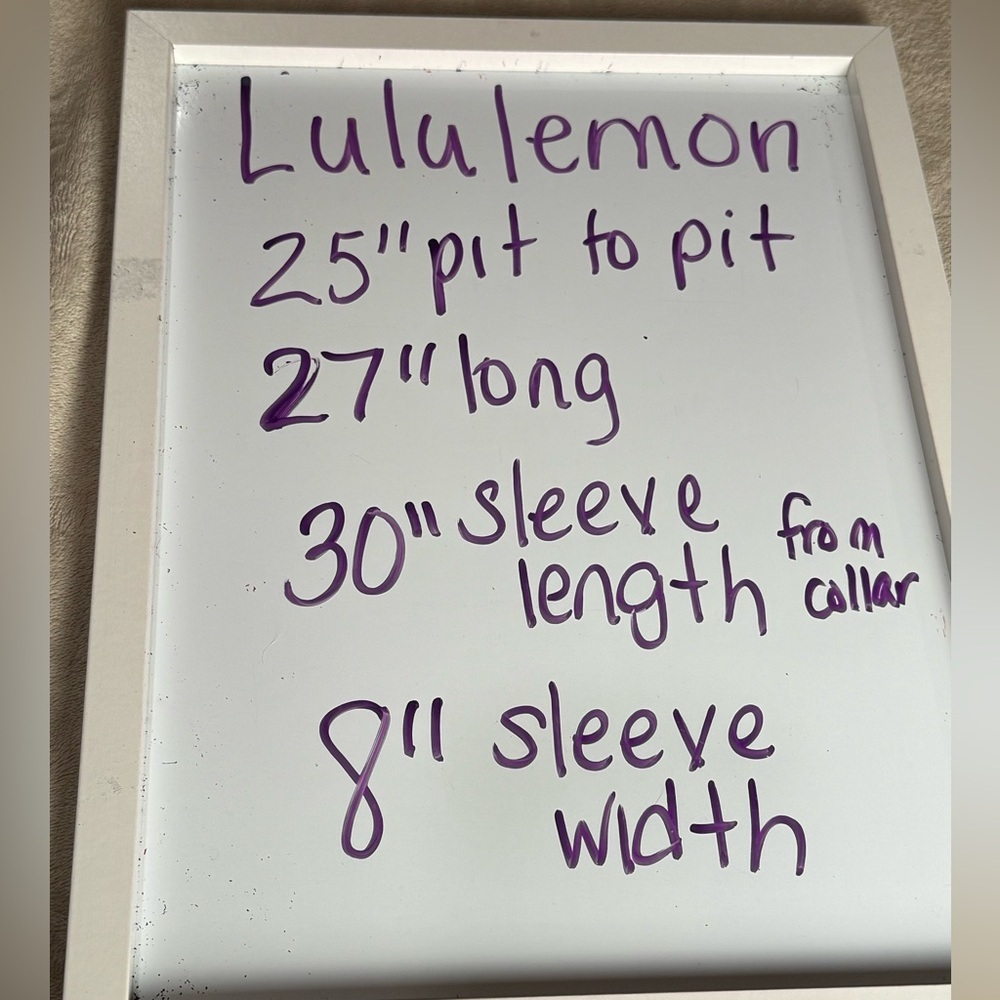 Lululemon
25" pit to pit
27" long
30" sleeve
length
from
collar
8" sleeve
width